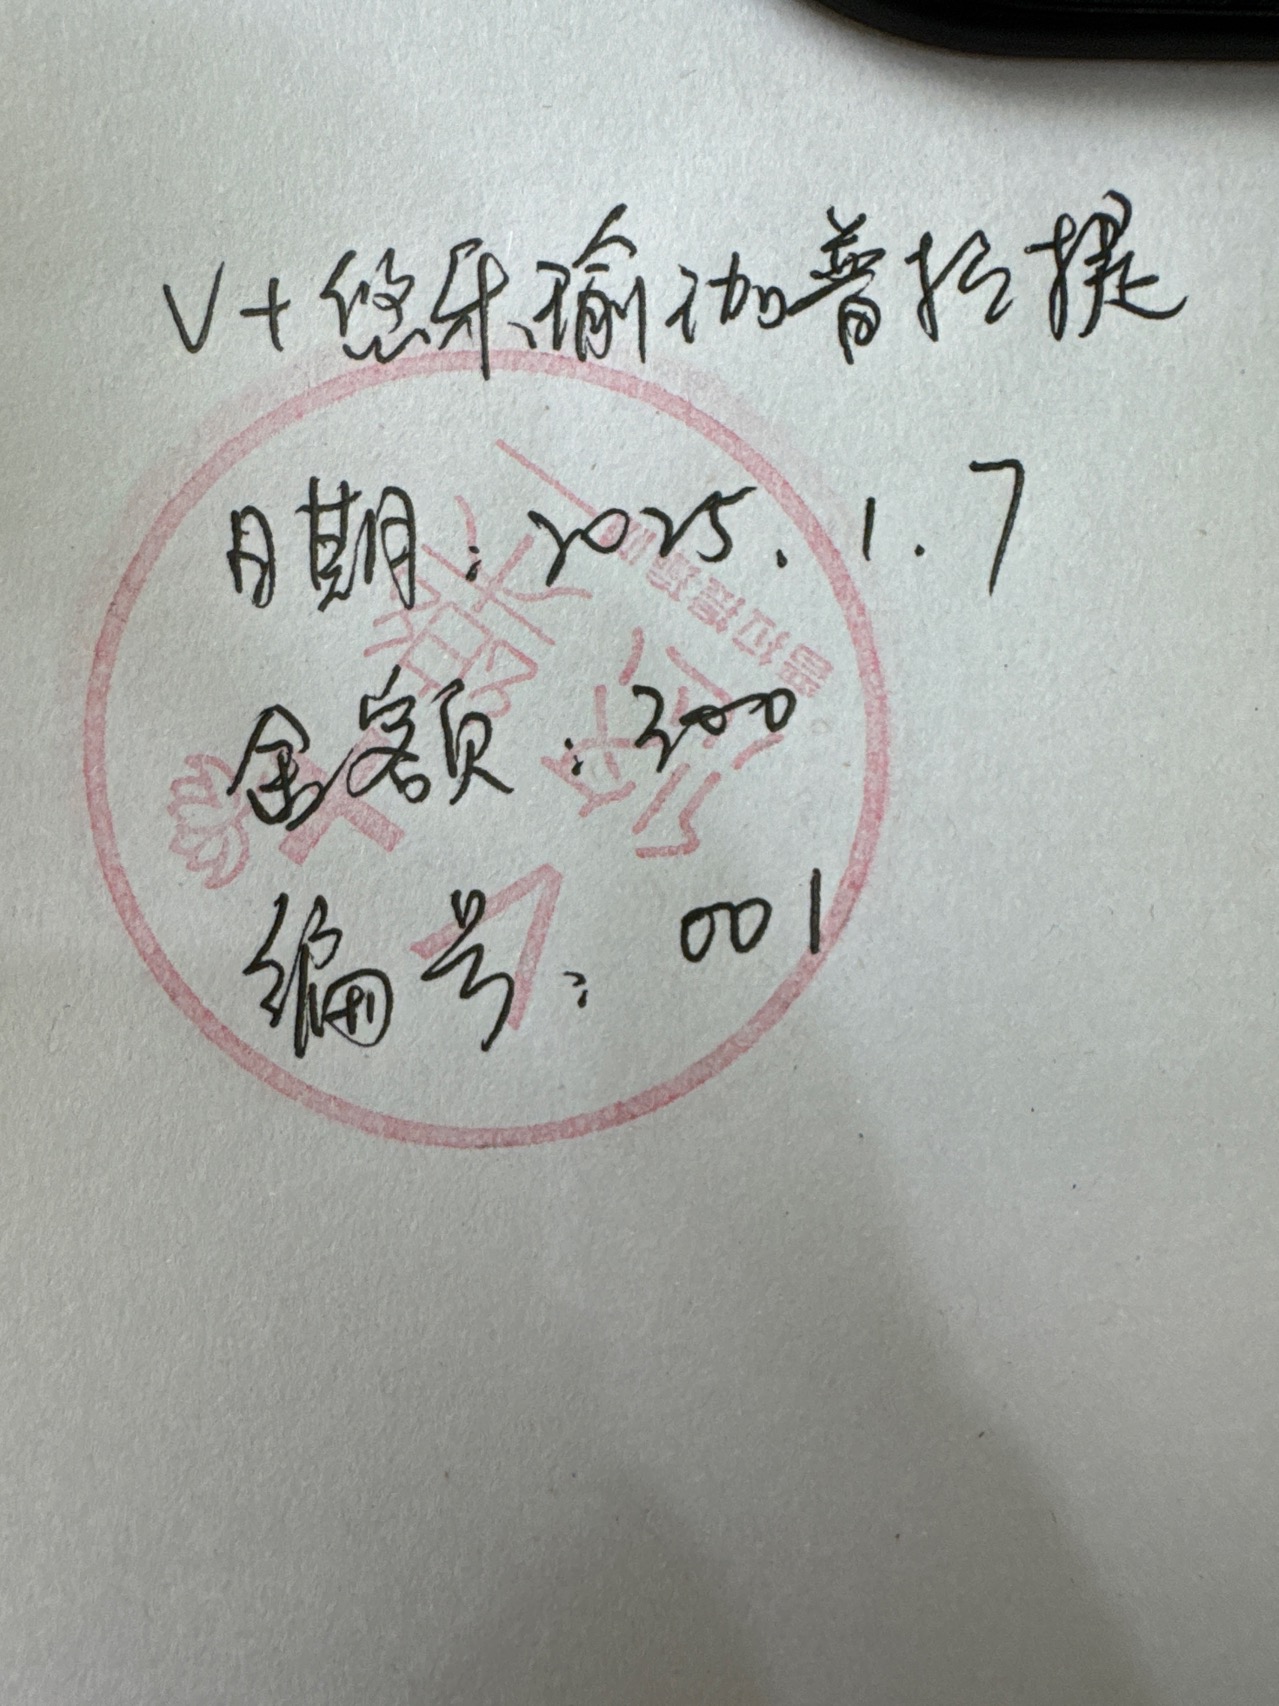 V+悠乐瑜珈普拉提
日期：2025.1.7
金额：300
编号：001